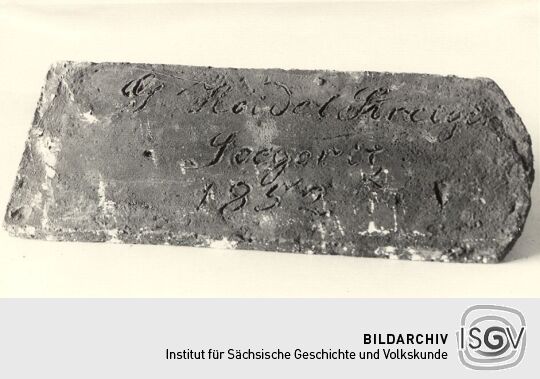 G. Heidel Streiger
Seegeritz
1852
BILDARCHIV
Institut für Sächsische Geschichte und Volkskunde
ISGV